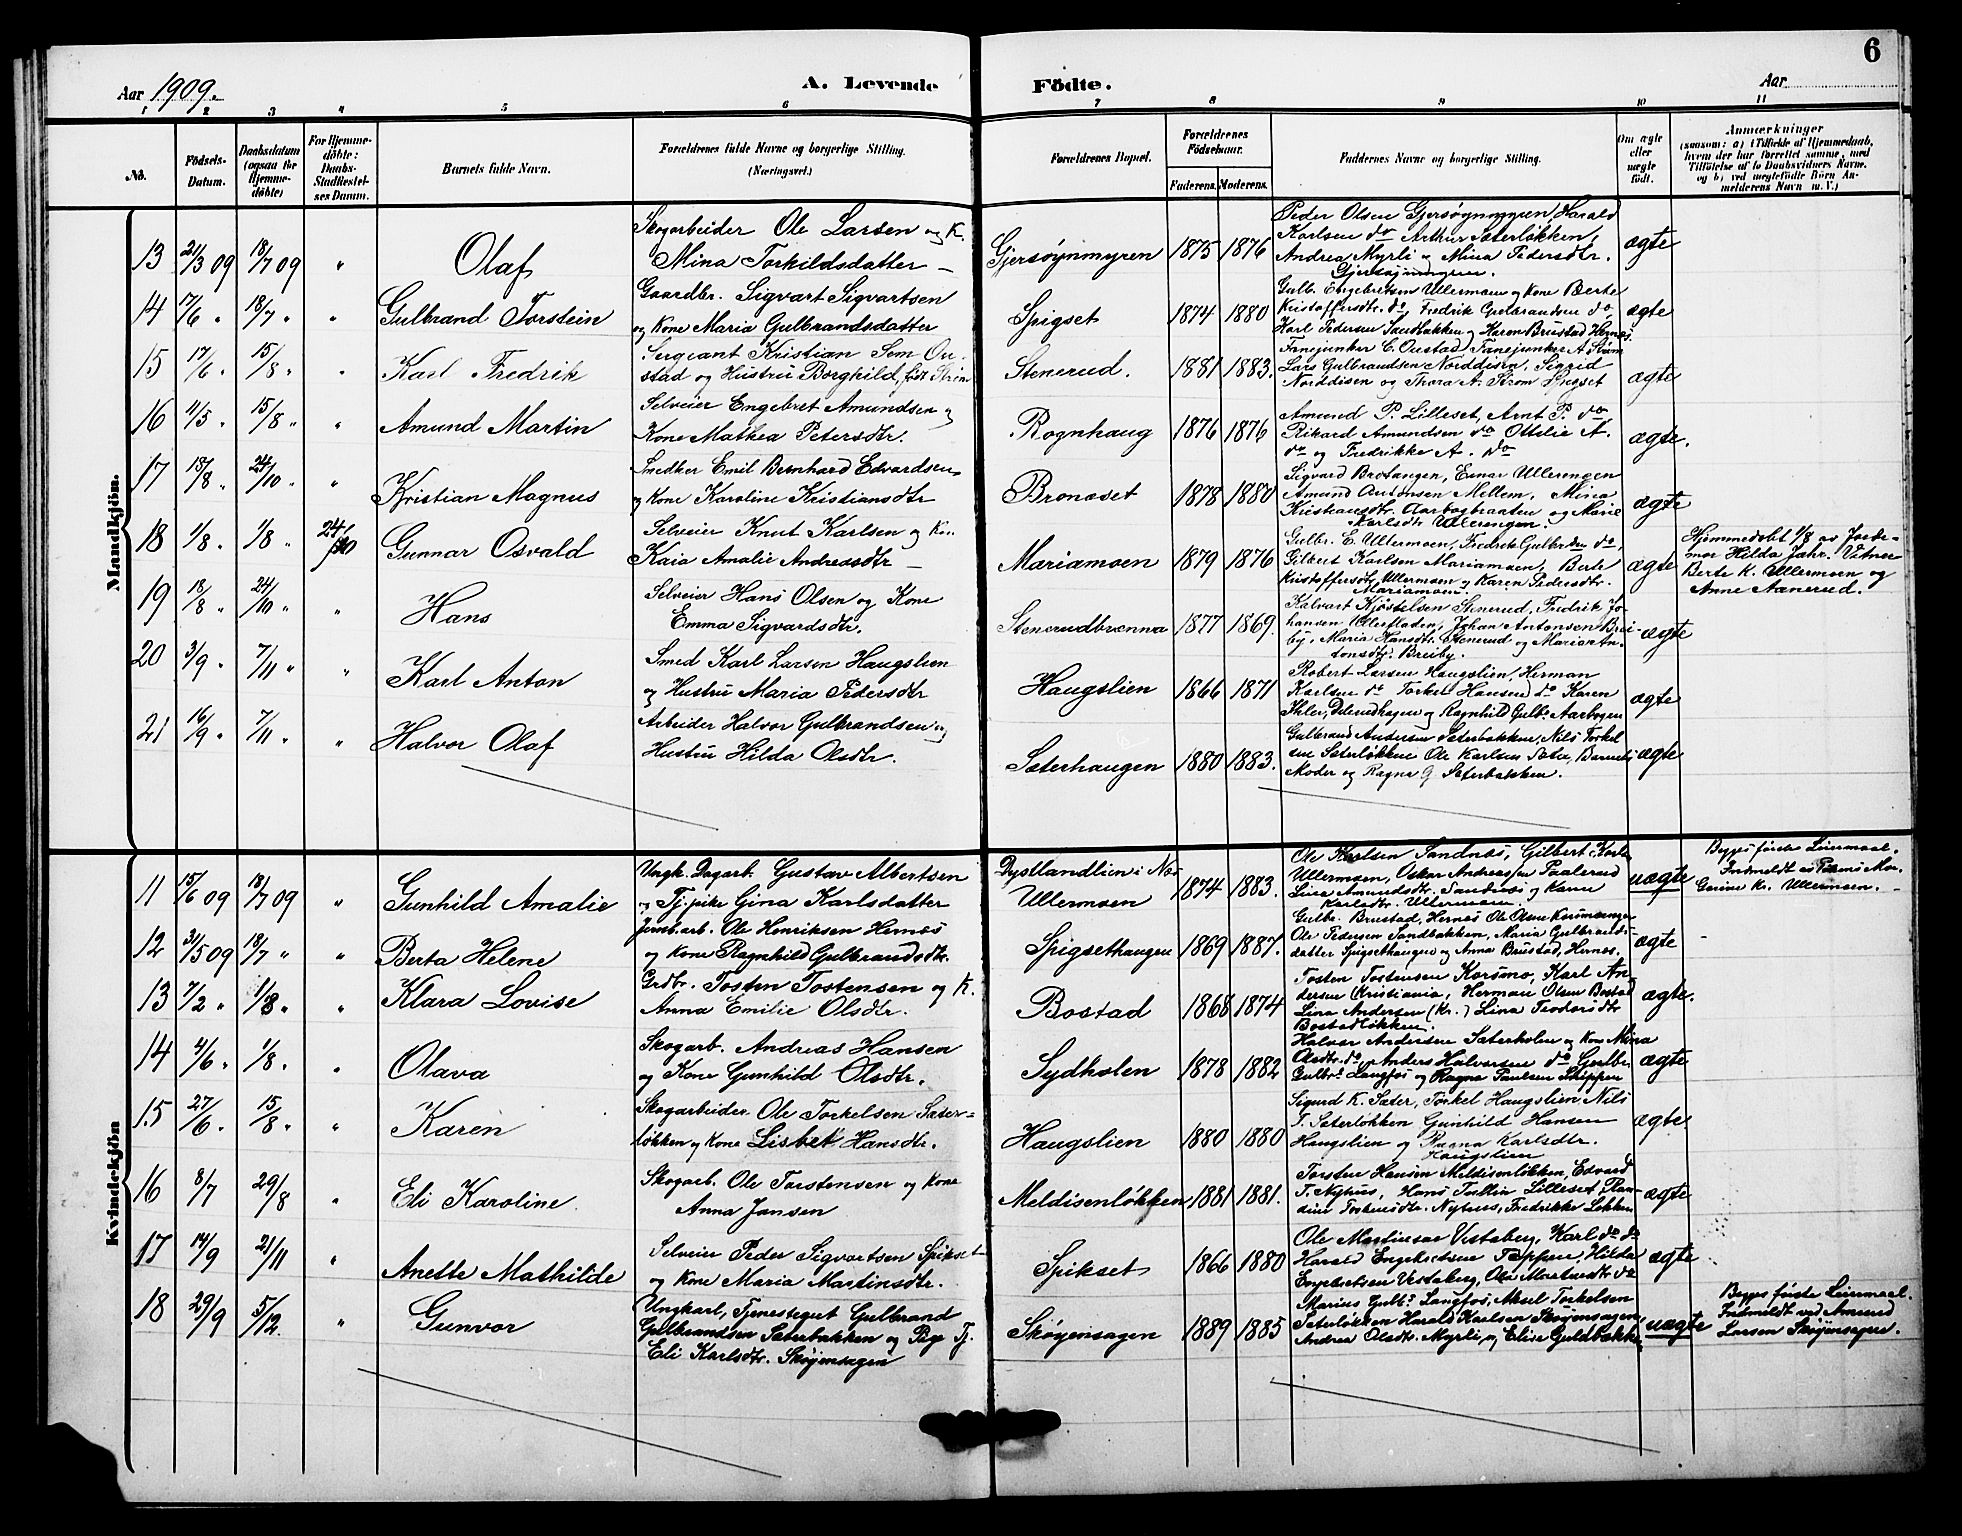 6
Aar 1909.
A. Levende Födte.
Aar
1 2 3 4 5 6 7 8 9 10 11
No.
Födsels-Datum.
Daabsdatum (ogsaa for Hjemme-döbte)
For Hjemme-döbte: Daabs-Stadfæstel-ses Datum.
Barnets fulde Navn.
Forældrenes fulde Navne og borgerlige Stilling. (Næringsvei.)
Forældrenes Bopæl.
Forældrenes Födselsaar.
Faderens. Moderens.
Faddernes Navne og borgerlige Stilling.
Om ægte eller uægte födt.
Anmærkninger
(saasom: a) i Tilfælde af Hjemmedaab, hvem der har forrettet samme, med Tilföielse af to Daabsvidners Navne. og b) ved uægtefödte Börn Anmelderens Navn m. V.)
Mandkjön.
13 21/3 09 18/7 09 " Olaf
Skogarbeider Ole Larsen og K.
Mina Torkildsdatter
Gjersøynmyren 1875 1876
Peder Olsen Gjersøynmyren, Harald
Karlsen do Arthur Sæterløkken,
Andrea Myrli og Mina Pedersdtr.
Gjersøynmyren.
ægte
14 17/6 " 18/7 " " Gulbrand Torstein
Gaardbr. Sigvart Sigvartsen
og Kone Maria Gulbrandsdatter
Spigset 1874 1880
Gulb. Engebretsen Ullermoen og Kone Berte
Kristoffersdtr. do, Fredrik Gulbrandsen do,
Karl Pedersen Sandbakken og Karen Brustad Hernes.
ægte
15 17/6 " 15/8 " " Karl Fredrik
Sergeant Kristian Sem Ou-
stad og Hustru Borghild, født Strøm
Stenerud. 1881 1883.
Fanejunker C. Oustad, Fanejunker A. Strøm
Lars Gulbrandsen Norddisen, Sigrid
Norddisen og Thora A. Strøm Spigset
ægte
16 4/5 " 15/8 " " Amund Martin
Selveier Engebret Amundsen og
Kone Mathea Petersdtr.
Rognhaug 1876 1876
Amund P. Lilleset, Arnt P. do
Rikard Amundsen do Ottilie A.
do og Fredrikke A. do
ægte.
17 15/8 " 24/10 " " Kristian Magnus
Snedker Emil Bernhard Edvardsen
og Kone Karoline Kristiansdtr
Bronæset 1878 1880
Sigvard Brotangen, Einar Ullerengen
Amund Antonsen Mellem, Mina
Kristiansdtr. Aarbogbraaten og Marie
Karlsdtr Ullerengen.
ægte
18 1/8 " 1/8 " 24/10 Gunnar Osvald
Selveier Knut Karlsen og Kone
Kaia Amalie Andreasdtr
Mariamoen 1879 1876
Gulbr. E. Ullermoen, Fredrik Gulbrdsen do,
Gilbert Karlsen Mariamoen, Berte
Kristoffersdtr. Ullermoen og Karen Pedersdtr.
Mariamoen.
ægte
Hjemmedøbt 1/8 av Jorde-
mor Hilda Jahr. Vitner
Berte K. Ullermoen og
Anne Aanerud.
19 18/8 " 24/10 " " Hans
Selveier Hans Olsen og Kone
Emma Sigvardsdtr.
Stenerudbrænna 1877 1869.
Halvart Kjøstelsen Stenerud, Fredrik Jo-
hansen Ulerfladen, Johan Antonsen Brei-
by, Maria Hansdtr. Stenerud og Maria An-
tonsdtr. Breiby.
ægte
20 3/9 " 7/11 " " Karl Anton
Smed Karl Larsen Haugslien
og Hustru Maria Pedersdtr
Haugslien 1866 1871
Robert Larsen Haugslien, Herman
Karlsen do Torkel Hansen do Karen
Ihler, Delerudhagen og Ragnhild Gulb. Aarbogen
ægte
21 16/9 " 7/11 " " Halvor Olaf
Arbeider Halvor Gulbrandsen og
Hustru Hilda Olsdtr.
Sæterhaugen 1880 1883.
Gulbrand Andersen Sæterbakken, Nils Torkel
sen Sæterløkken Ole Karlsen Sæter, Barnets
Moder og Ragna G Sæterbakken.
ægte
Kvindekjön
11 15/6 09 18/7 09 " Gunhild Amalie
Ungk. Dagarb. Gustav Albertsen
og Tj.pike Gina Karlsdatter
Dystlandlien i Nes
Ullermoen 1874 1883.
Ole Karlsen Sandnæs, Gilbert Karls
Ullermoen, Oskar Andreassen Paalerud
Lina Amundsdtr. Sandnæs og Kaia
Karlsdtr. Ullermoen.
uægte
Begges første Leiermaal.
Indmeldt av
Gerine Kr. Ullermoen.
12 31/5 09 18/7 " " Berta Helene
Jernb.arb. Ole Henriksen Hernæs
og Kone Ragnhild Gulbrandsdtr.
Spigsethaugen 1869 1887.
Gulbr. Brustad, Hernes Ole Olsen
Ole Pedersen Sandbakken, Maria Gulbrands-
datter Spigsethaugen og Anna Brustad, Hernæs.
ægte
13 7/2 " 1/8 " " Klara Lovise
Grdbr. Tosten Tostensen og K.
Anna Emilie Olsdtr.
Bostad 1868 1874
Tosten Tostensen Korsmo, Karl An-
dersen Kristiania, Herman Olsen Bostad
Lina Andersen (Kr.) Lina Teodorsdtr
Bostadløkken.
ægte.
14 4/6 " 1/8 " " Olava
Skogarb. Andreas Hansen
og Kone Gunhild Olsdtr.
Sydholen 1878 1882
Halvor Andersen Sæterholen og Kone Mina
Olsdtr. do, Anders Halvorsen do Gulbr.
Gulbr. Langfos og Ragna Paulsen Skippen
ægte
15 27/6 " 15/8 " " Karen
Skogarbeider Ole Torkelsen Sæter-
løkken og Kone Lisbet Hansdtr.
Haugslien 1880 1880
Sigurd K. Sæter, Torkel Haugslien Nils
T. Sæterløkken Gunhild Hansen
Haugslien og Ragna Karlsdtr.
Haugslien
ægte
16 8/7 29/8 " Eli Karoline.
Skogarb. Ole Torstensen og Kone
Anna Jansen
Meldisenløkken 1881 1881.
Torsten Hansen Meldisenløkken, Edvard
T. Nyhus, Hans Tullin Lilleset, Ran-
dine Nyhus, Fredrikke Løkken
ægte
17 14/9 21/11 " Anette Mathilde
Selveier Peder Sigvartsen Spikset
og Kone Maria Martinsdtr.
Spikset 1866 1880
Ole Martinsen Vestaberg, Karl do do
Harald Engebretsen Tappen, Hilda
Engebretsen Vestaberg,
ægte
18 29/9 5/12. " Gunvor
Ungkarl, Tjenestegut Gulbrand
Gulbrandsen Sæterbakken og Pige Tj.
Eli Karlsdtr. Skøyensagen
Skøyensagen 1889 1885
Marius Gulb. Langfos, Aksel Torkelsen
Sæterløkken Harald Karlsen Skøyensagen,
Andrea Olsdtr. Myrli, og Elise Guldbakke
uægte
Begges første Leiermaal.
Indmeldt ved Amund
Larsen Skøyensagen.